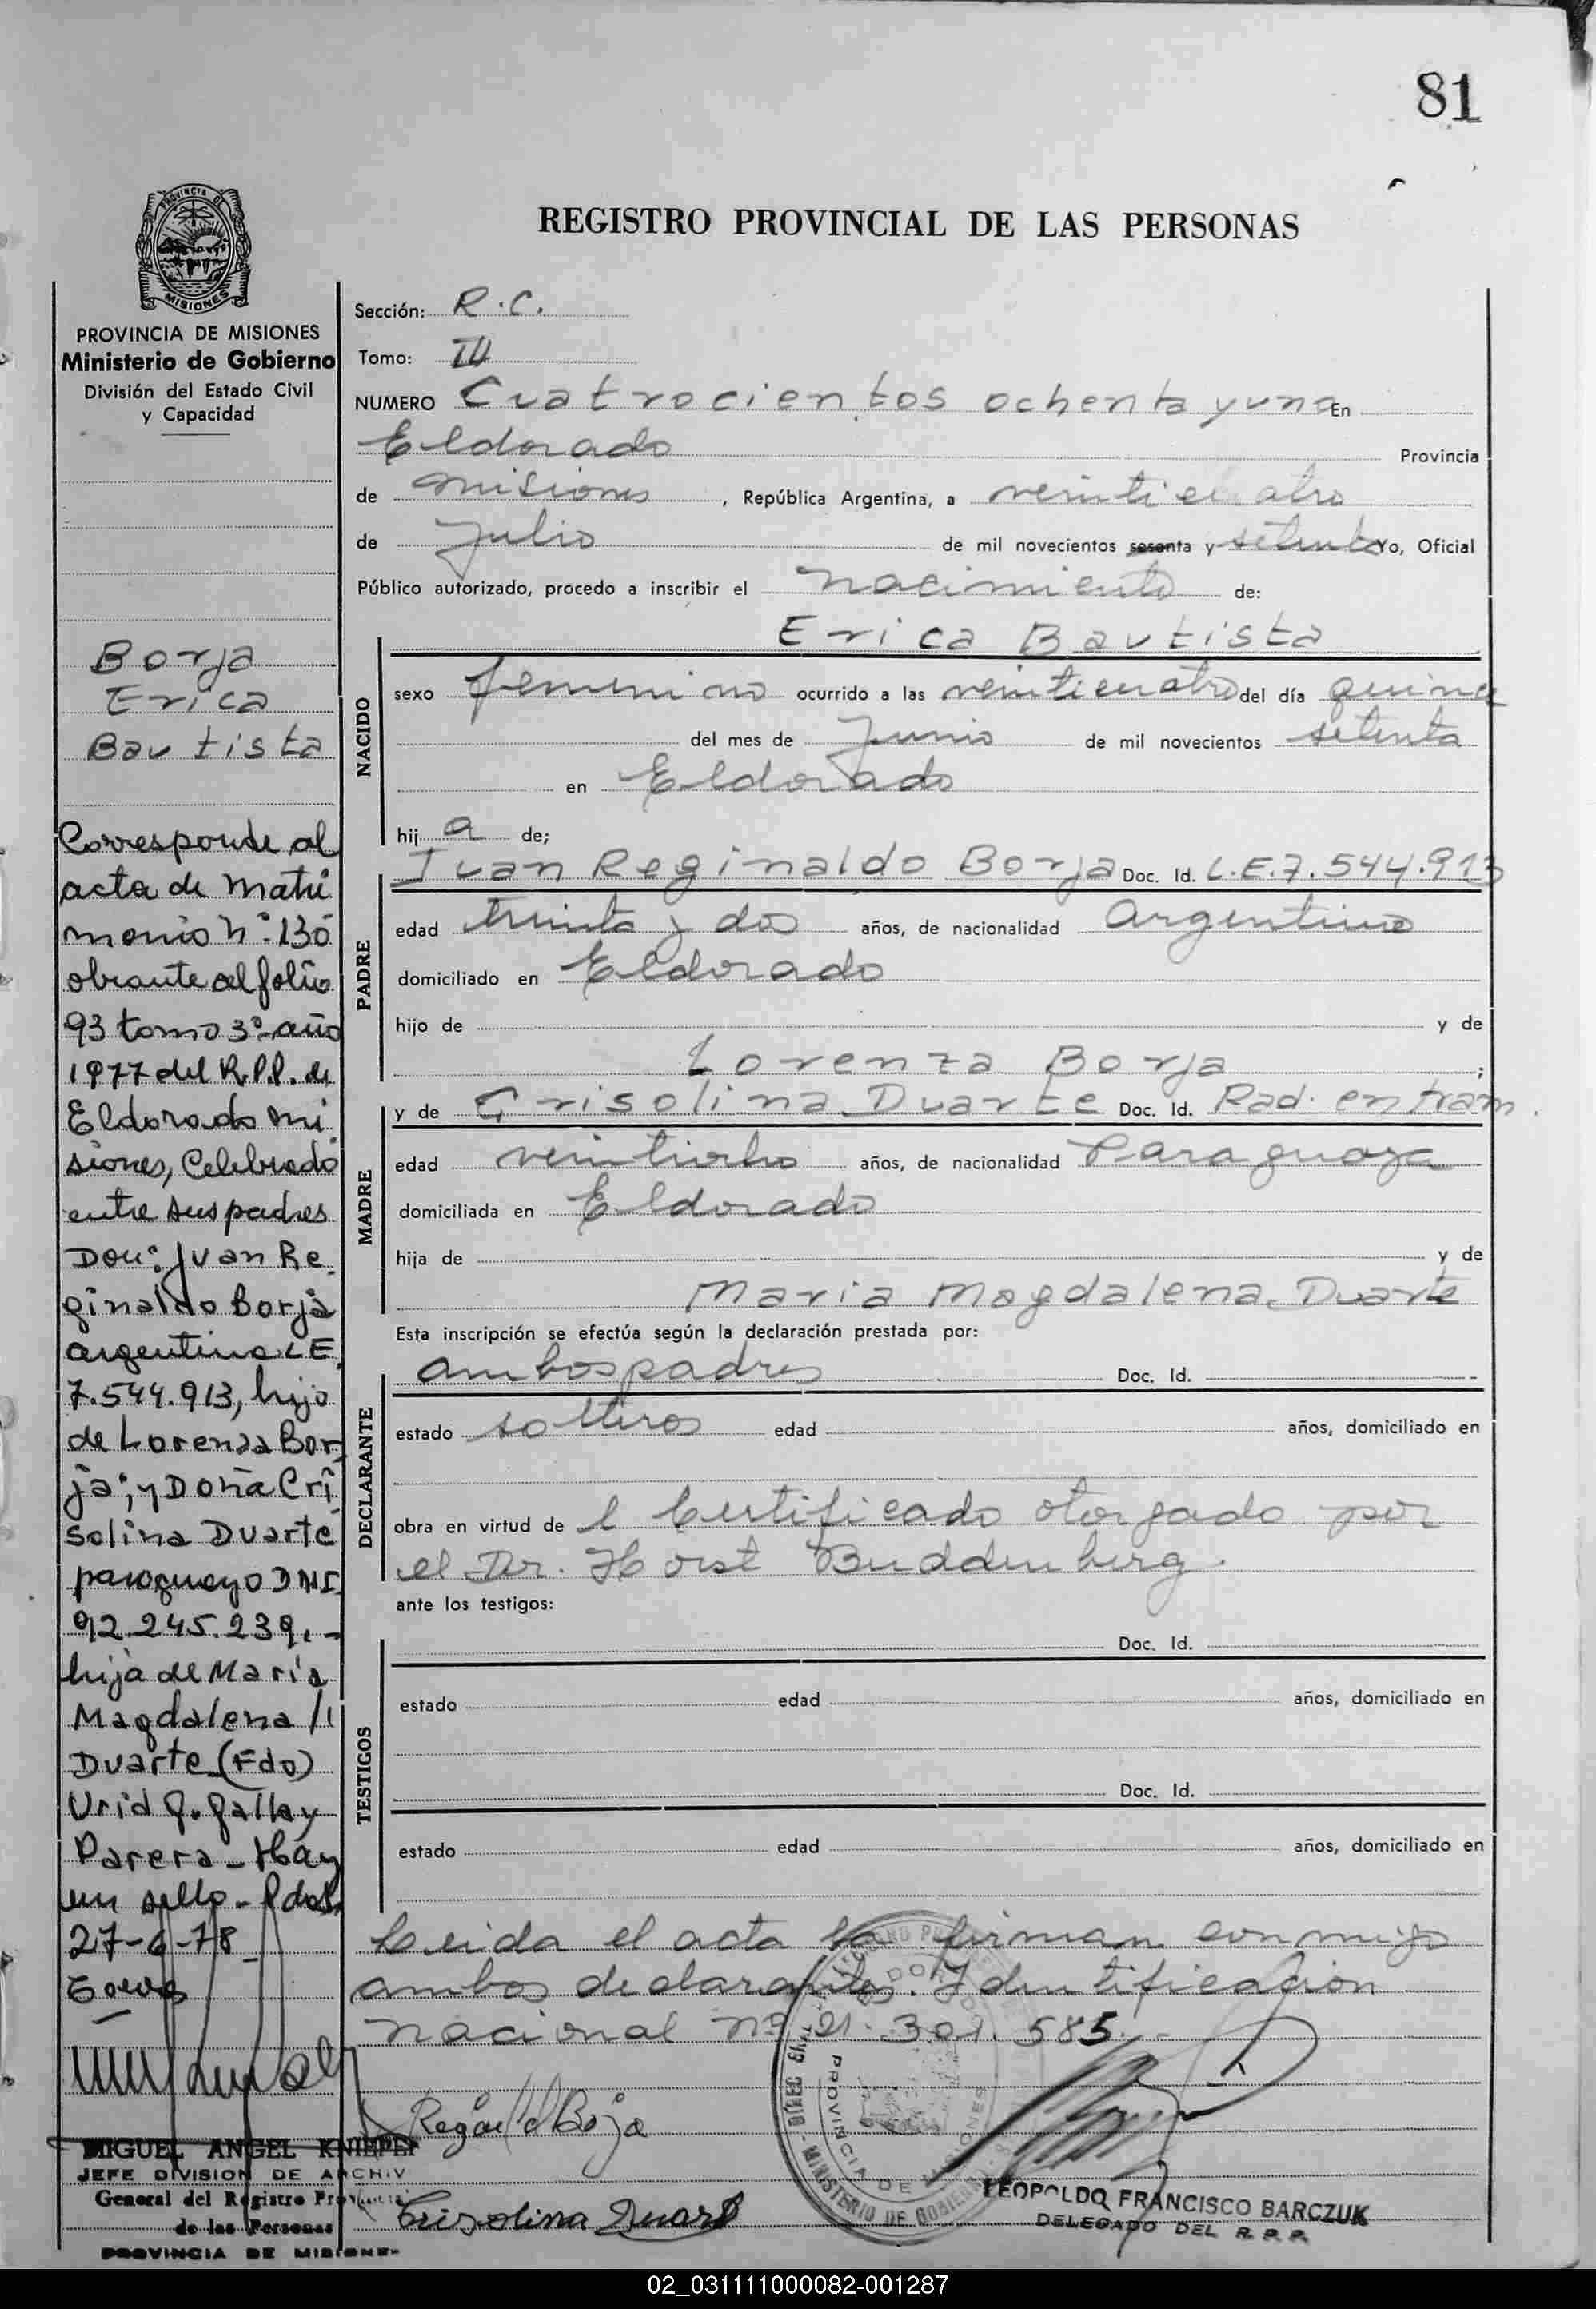 81
PROVINCIA DE
MISIONES
REGISTRO PROVINCIAL DE LAS PERSONAS
PROVINCIA DE MISIONES
Ministerio de Gobierno
División del Estado Civil
y Capacidad
Borja
Erica
Bautista
Corresponde al
acta de matri
monio Nº 130
obrante al folio
93 tomo 3º año
1977 del R.P.P. de
Eldorado Mi
siones, Celebrado
entre sus padres
Don: Juan Re
ginaldo Borja
argentino L E
7.544.913, hijo
de Lorenza Bor
ja; y Doña Cri
solina Duarte
paraguayo DNI
92.245.239.-
hija de Maria
Magdalena //
Duarte (Fdo)
Parera - Hay
un sello - Pdas.
27-6-78
MIGUEL ANGEL
JEFE DIVISION DE ARCHIV
General del Registro Provincial
de las Personas
PROVINCIA DE MISIONES
Sección: R.C.
Tomo: III
NUMERO Cuatrocientos ochenta y uno En
Eldorado Provincia
de Misiones , República Argentina, a veinticuatro
de Julio de mil novecientos sesenta y setenta Yo, Oficial
Público autorizado, procedo a inscribir el nacimiento de:
Erica Bautista
NACIDO
sexo femenino ocurrido a las veinticuatro del día quince
del mes de Junio de mil novecientos setenta
en Eldorado
hij a de;
Juan Reginaldo Borja Doc. Id. L.E.7.544.913
PADRE
edad treinta y dos años, de nacionalidad Argentino
domiciliado en Eldorado
hijo de y de
Lorenza Borja ;
y de Crisolina Duarte Doc. Id. Rad. en tram.
MADRE
edad veintiocho años, de nacionalidad Paraguaya
domiciliada en Eldorado
hija de y de
Maria Magdalena Duarte
Esta inscripción se efectúa según la declaración prestada por:
ambos padres Doc. Id.
DECLARANTE
estado solteros edad años, domiciliado en
obra en virtud de l Certificado otorgado por
el Dr. Horst Buddenberg.
ante los testigos:
Doc. Id.
TESTIGOS
estado edad años, domiciliado en
Doc. Id.
estado edad años, domiciliado en
Leida el acta la firman conmigo
ambos declarantes. Identificación
nacional nº 21.301.585.-
Crisolina Duarte
PROVINCIA DE MISIONES
MINISTERIO DE GOBIERNO
LEOPOLDO FRANCISCO BARCZUK
DELEGADO DEL R. P. P.
02_031111000082-001287